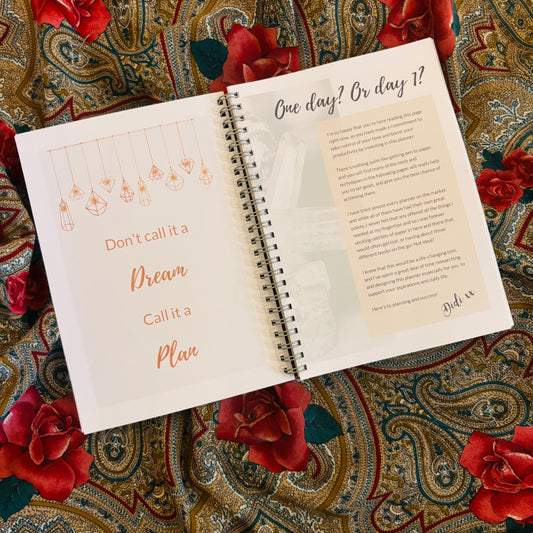 Don't call it a
Dream
Call it a
Plan
One day? Or day 1?
I'm so happy that you're here reading this page
right now, as you have made a commitment to
take control of your time and boost your
productivity by investing in this planner.
There's nothing quite like getting pen to paper,
and you will find many of the tools and
techniques in the following pages will really help
you to set goals, and give you the best chance of
achieving them.
I have tried almost every planner on the market
and while all of them have had their own great
points, I never felt that any offered all the things I
needed at my fingertips and so I was forever
sticking odd bits of paper in here and there that
would often get lost, or having about three
different books on the go! Not ideal!
I knew that this would be a life-changing tool,
and I've spent a great deal of time researching
and designing this planner especially for you to
support your aspirations and daily life.
Here's to planning and success!
Didi xx